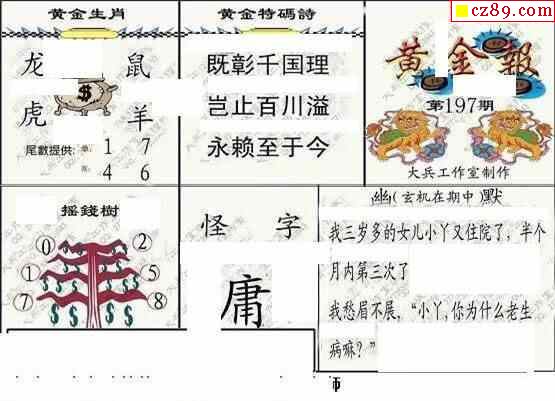 cz89.com
黄金生肖
龙 鼠
虎 羊
尾數提供: 单: 1 7
双: 4 6
黄金特码詩
既彰千国理
岂止百川溢
永赖至于今
黄金報
第197期
大兵工作室制作
摇錢樹
0 2
1 5
7 8
怪 字
庸
幽(玄机在期中)默
我三岁多的女儿小丫又住院了，半个
月内第三次了
我愁眉不展，“小丫，你为什么老生
病嘛？”